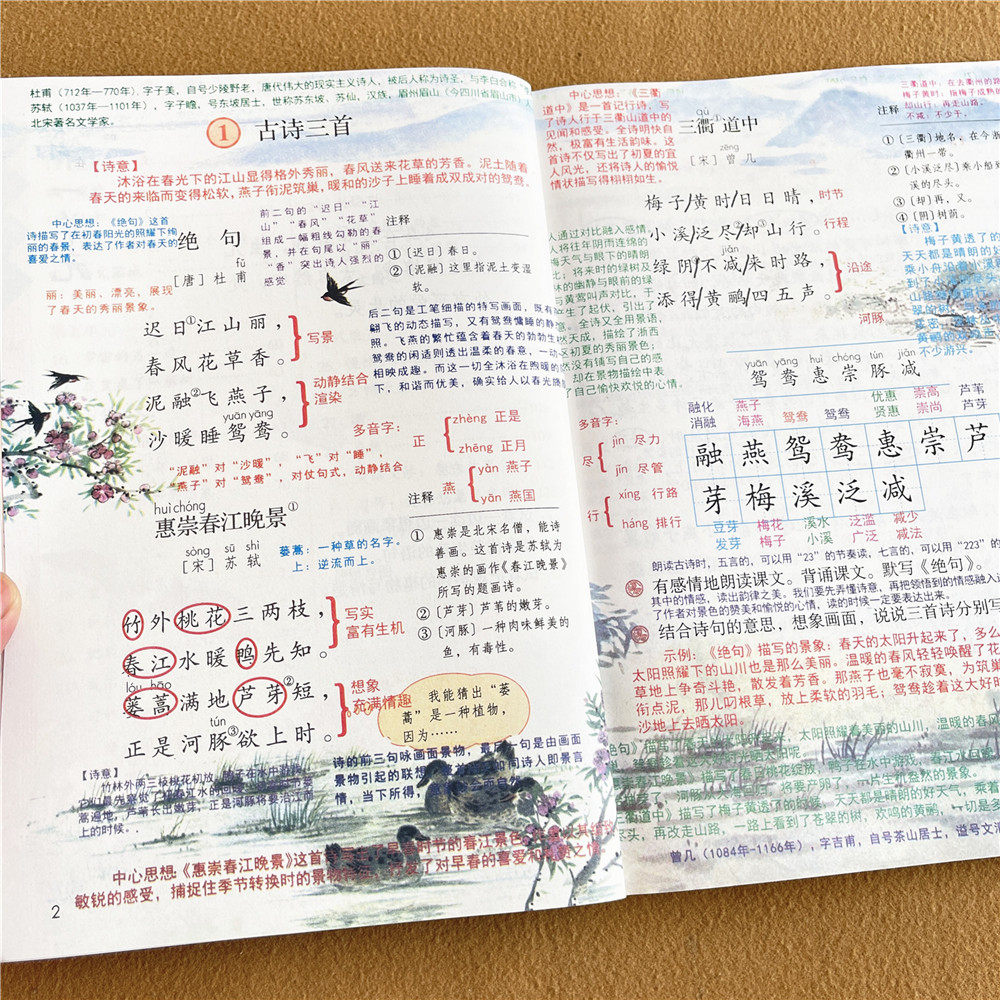 杜甫（712年—770年），字子美，自号少陵野老，唐代伟大的现实主义诗人，被后人称为诗圣，与李白合称
苏轼（1037年—1101年），字子瞻，号东坡居士，世称苏东坡、苏仙，汉族，眉州眉山（今四川省眉山市）人
北宋著名文学家。
1 古诗三首
【诗意】
沐浴在春光下的江山显得格外秀丽，春风送来花草的芳香。泥土随着
春天的来临而变得松软，燕子衔泥筑巢，暖和的沙子上睡着成双成对的鸳鸯。
中心思想：《绝句》这首
诗描写了在初春阳光的照耀下绚
丽的春景，表达了作者对春天的
喜爱之情。
绝句
fǔ
［唐］杜甫
前二句的“迟日”“江
山”“春风”“花草”
组成一幅粗线勾勒的春
景，并在句尾以“丽”
“香”突出诗人强烈的
感觉
注释
①［迟日］春日。
②［泥融］这里指泥土变湿
软。
丽：美丽、漂亮，展现
了春天的秀丽景象。
迟日①江山丽，
春风花草香。
写景
泥融②飞燕子，
yuān yāng
沙暖睡鸳鸯。
动静结合
渲染
后二句是工笔细描的特写画面，既有
翩飞的动态描写，又有鸳鸯慵睡的静
照。飞燕的繁忙蕴含着春天的勃勃生
鸳鸯的闲适则透出温柔的春意，一动
相映成趣。而这一切全沐浴在煦暖的
下，和谐而优美，确实给人以春光旖
“泥融”对“沙暖”，“飞”对“睡”，
“燕子”对“鸳鸯”，对仗句式，动静结合
多音字：
正
zhèng 正是
zhēng 正月
燕
yàn 燕子
yān 燕国
huì chóng
惠崇春江晚景①
sòng sū shì
［宋］苏轼
蒌蒿：一种草的名字。
上：逆流而上。
注释
① 惠崇是北宋名僧，能诗
善画。这首诗是苏轼为
惠崇的画作《春江晚景》
所写的题画诗。
②［芦芽］芦苇的嫩芽。
③［河豚］一种肉味鲜美的
鱼，有毒性。
竹外桃花三两枝，
春江水暖鸭先知。
写实
富有生机
lóu hāo
蒌蒿满地芦芽②短，
tún
正是河豚③欲上时。
想象
充满情趣
我能猜出“蒌
蒿”是一种植物，
因为……
【诗意】
竹林外两三枝桃花初放，鸭子在水中游
上的时候。
诗的前三句咏画面景物，最后一句是由画面
景物引起的联想
情，当下所得，
中心思想：《惠崇春江晚景》这首
敏锐的感受，捕捉住季节转换时的景物
了对早春的喜爱和
2
中心思想：《三衢
道中》是一首记行诗，写
了诗人行于三衢山道中的
见闻和感受。全诗明快自
然，极富有生活韵味。这
首诗不仅写出了初夏的宜
人风光，还将诗人的愉悦
情状描写得栩栩如生。
qú
三衢①道中
zēng
［宋］曾几
三衢道中，在去衢州的路
梅子黄时，指梅子成熟的
却山行，再走山路。
不减，不少于。
注释
①［三衢］地名，在今浙
衢州一带。
②［小溪泛尽］乘小船到
溪的尽头。
③［却］再，又。
④［阴］树荫。
梅子/黄时/日日晴，
时节
小溪/泛尽/却③山行。
行程
绿阴/不减/来时路，
添得/黄鹂/四五声。
沿途
人通过对比融入感情
人将往年阴雨连绵的
梅天气与眼下的晴朗
比，将来时的绿树及
林的幽静与眼前的绿
与黄莺叫声对比，于
产生了起伏，引出了
。全诗又全用景语，
然天成，描绘了浙西
区初夏的秀丽景色；
没有铺写自己的感
却在景物描绘中表
了自己愉快欢悦的心情。
【诗意】
梅子黄透了的
天天都是晴朗的好
乘小舟沿着小溪
不少游兴。
河豚
yuān yāng huì chóng tún jiǎn
鸳鸯惠崇豚减
融化 燕子 优惠 崇高 芦苇
消融 海燕 鸳鸯 鸳鸯 贤惠 崇尚 芦芽
融燕鸳鸯惠崇芦
芽梅溪泛减
豆芽 梅花 溪水 泛滥 减少
发芽 梅子 小溪 广泛 减法
多音字：
尽
jìn 尽力
jǐn 尽管
行
xíng 行路
háng 排行
朗读古诗时，五言的，可以用“23”的节奏读，七言的，可以用“223”的
有感情地朗读课文。背诵课文。默写《绝句》。
其中的情感，读出韵律之美。我们要先弄懂诗意，再把领悟到的情感融入
了作者对景色的赞美和愉悦的心情，读的时候一定要表达出来。
结合诗句的意思，想象画面，说说三首诗分别写
示例：《绝句》描写的景象：春天的太阳升起来了，多么
太阳照耀下的山川也是那么美丽。温暖的春风轻轻唤醒了花
草地上争奇斗艳，散发着芳香。那燕子也毫不寂寞，为筑巢
衔点泥，那儿叼根草，放上柔软的羽毛；鸳鸯趁着这大好时
沙地上去晒太阳。
太阳照耀着美丽的山川，温暖的春风
描写了梅子黄透了的时候，天天都是晴朗的好天气，乘着
头，再改走山路，一路上看到了苍翠的树，欢鸣的黄鹂，一切是多
曾几（1084年-1166年），字吉甫，自号茶山居士，谥号文清